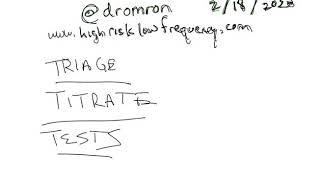 @dromron 2/18/2023
www.highrisklowfrequency.com
TRIAGE
TITRATE
TESTS